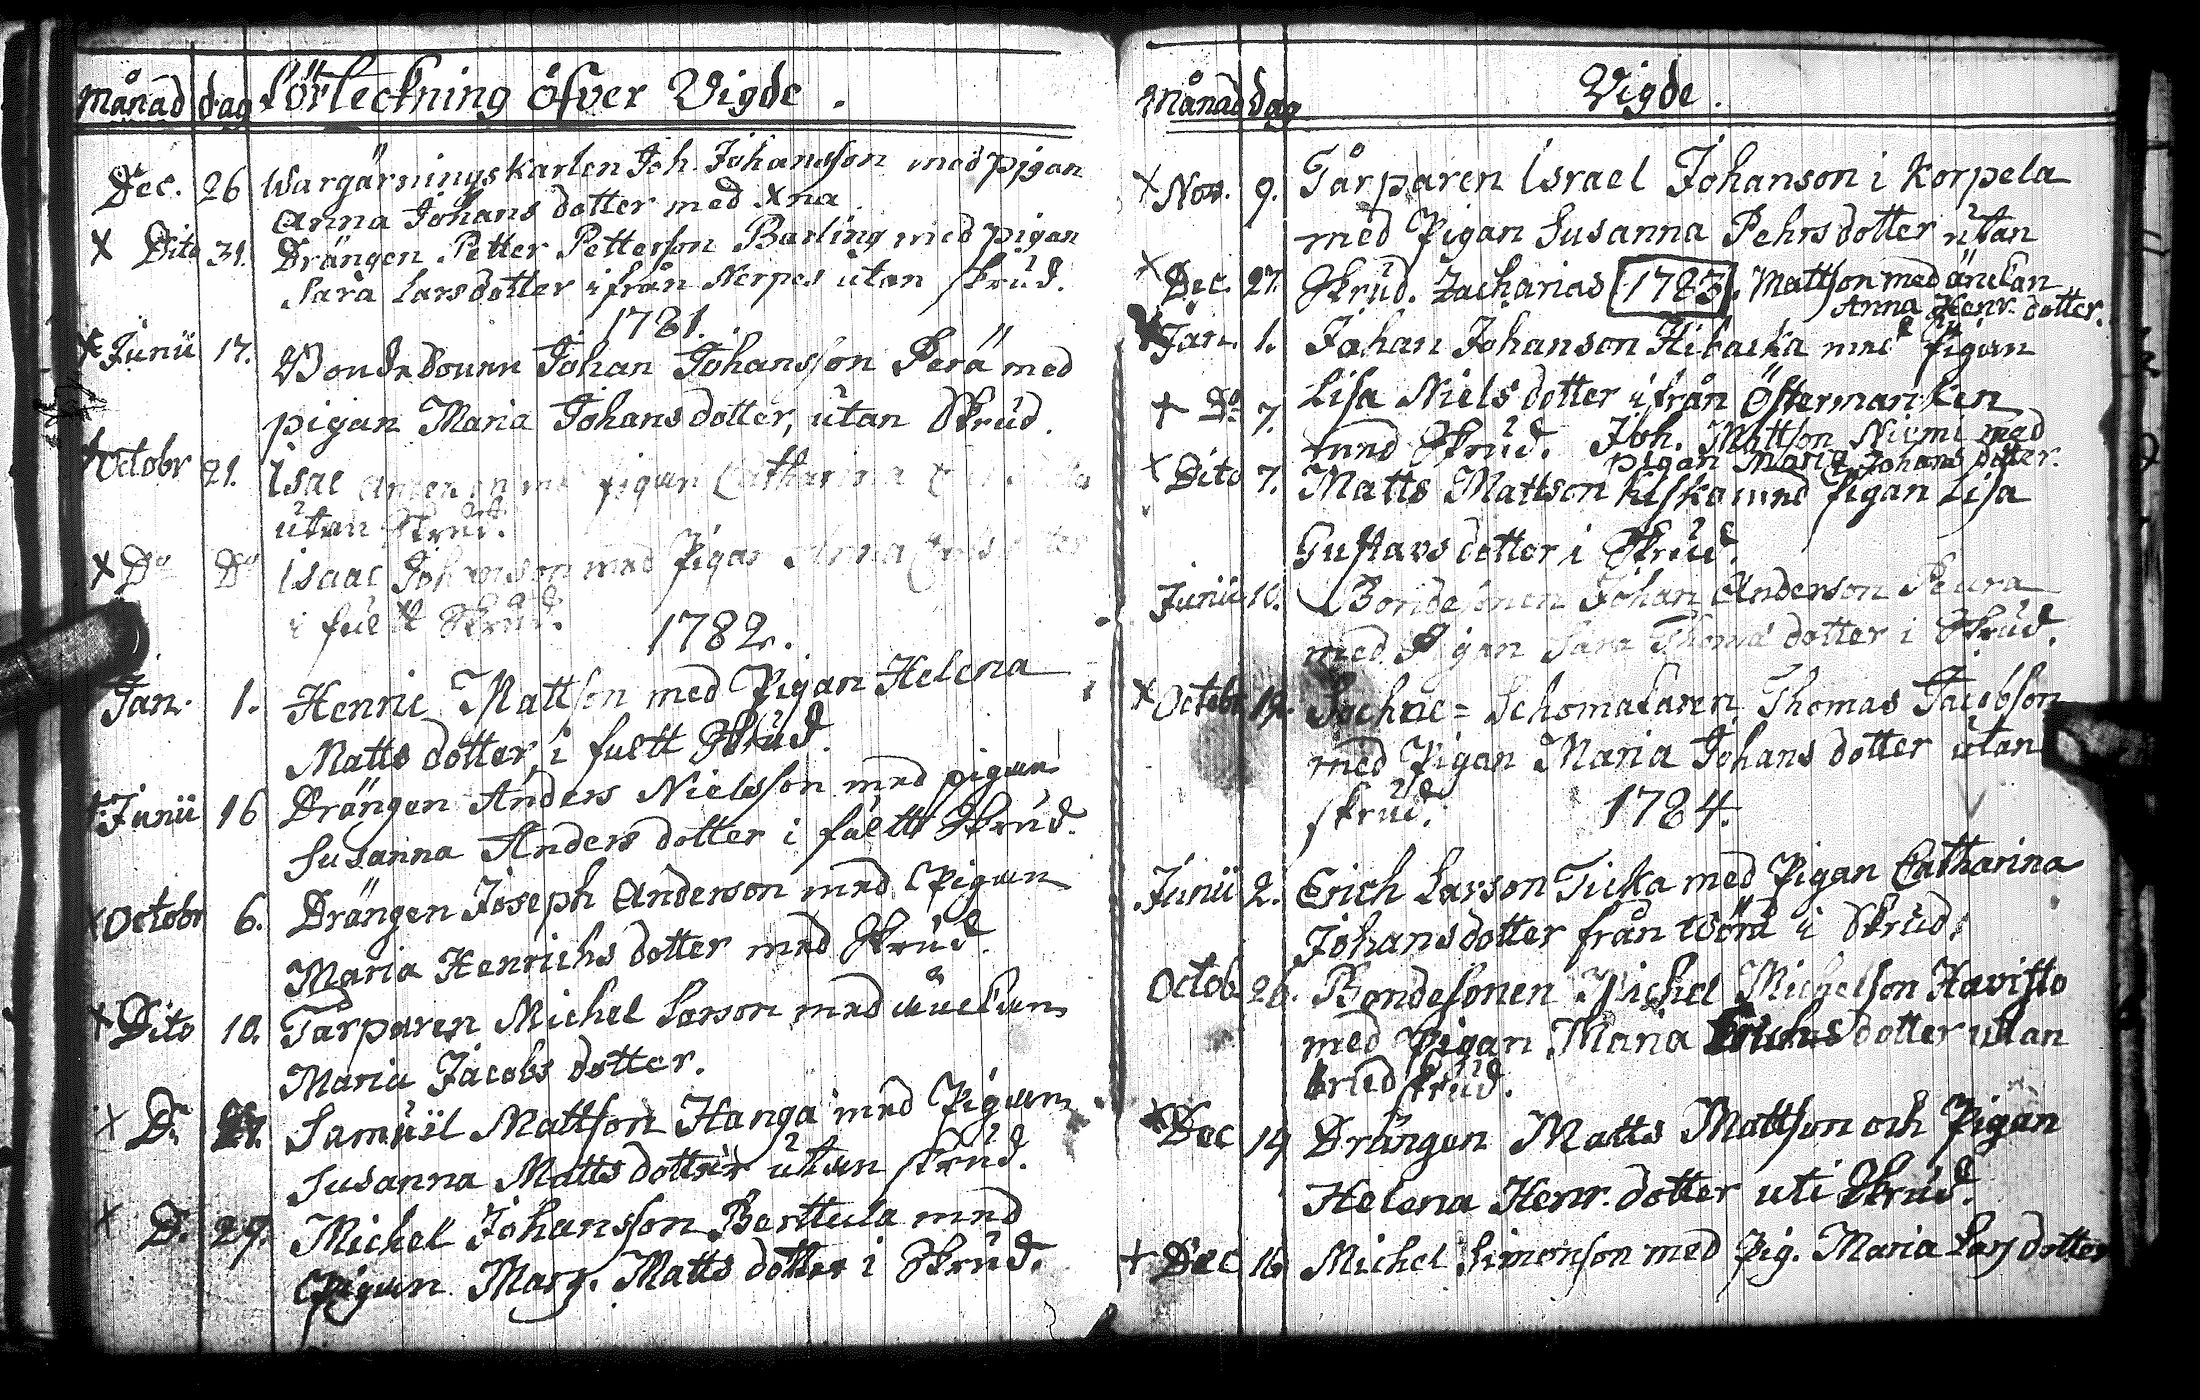 Månad dag Förteckning öfver Vigde.
Dec. 26 Wargärningskarlen Joh. Johansson med pigan
Anna Johans dotter med Xna
X Dito 31. Drängen Petter Petterson Barling med pigan
Sara Larsdotter ifrån Nerpes utan skrud.
1781.
X Junii 17. Bondesonen Johan Johansson Perä med
pigan Maria Johansdotter, utan Skrud.
X Octobr 21. Isac pigan Catharina
utan Skrud.
X Do Do Isaac Johanson med Pigan Anna
i fullt Skrud.
1782.
Jan. 1. Henric Mattson med Pigan Helena
Matts dotter, i fullt Skrud.
+ Junii 16 Drängen Anders Nielsson med pigan
Susanna Anders dotter i fullt Skrud.
X Octobr 6. Drängen Joseph Anderson med Pigan
Maria Henrichs dotter med Skrud.
X Dito 10. Tårparen Michel Larson med änckan
Maria Jacobs dotter.
X D. Samuil Mattson Hanga med Pigan
Susanna Matts dotter utan skrud.
X D. 27. Michel Johansson Berttula med
Pigan Marg. Matts dotter i Skrud.
Månad dag Vigde.
X Nov. 9. Tårparen Israel Johanson i Korpela
med Pigan Susanna Pehrs dotter utan
X Dec. 27. Skrud. Zacharias 1783. Mattson med änckan
Anna Henr. dotter.
X Jan. 1. Johan Johanson Hibacka med Pigan
Lisa Niels dotter ifrån Östermarcken
+ Do 7. med Skrud. Joh. Mattson Niemi med
pigan Maria Johans dotter.
X Dito 7. Matts Mattson Kiska med Pigan Lisa
Gustavs dotter i Skrud.
Junii 10. Bondesonen Johan Anderson Peura
med Pigan Sara Thoma dotter i Skrud.
X Octobr 19. Sochne= Schomakaren Thomas Jacobson
med Pigan Maria Johans dotter utan
skrud. 1784.
Junii 2. Erich Larson Ticka med Pigan Catharina
Johansdotter från Wörå i Skrud.
Octob 26. Bondesonen Michel Michelson Havisto
med Pigan Maria Erichs dotter utan
brud skrud.
X Dec 19 Drängen Matts Mattson och Pigan
Helena Henr. dotter uti Skrud.
+ Dec 16 Michel Simonson med Pig. Maria Lars dotter